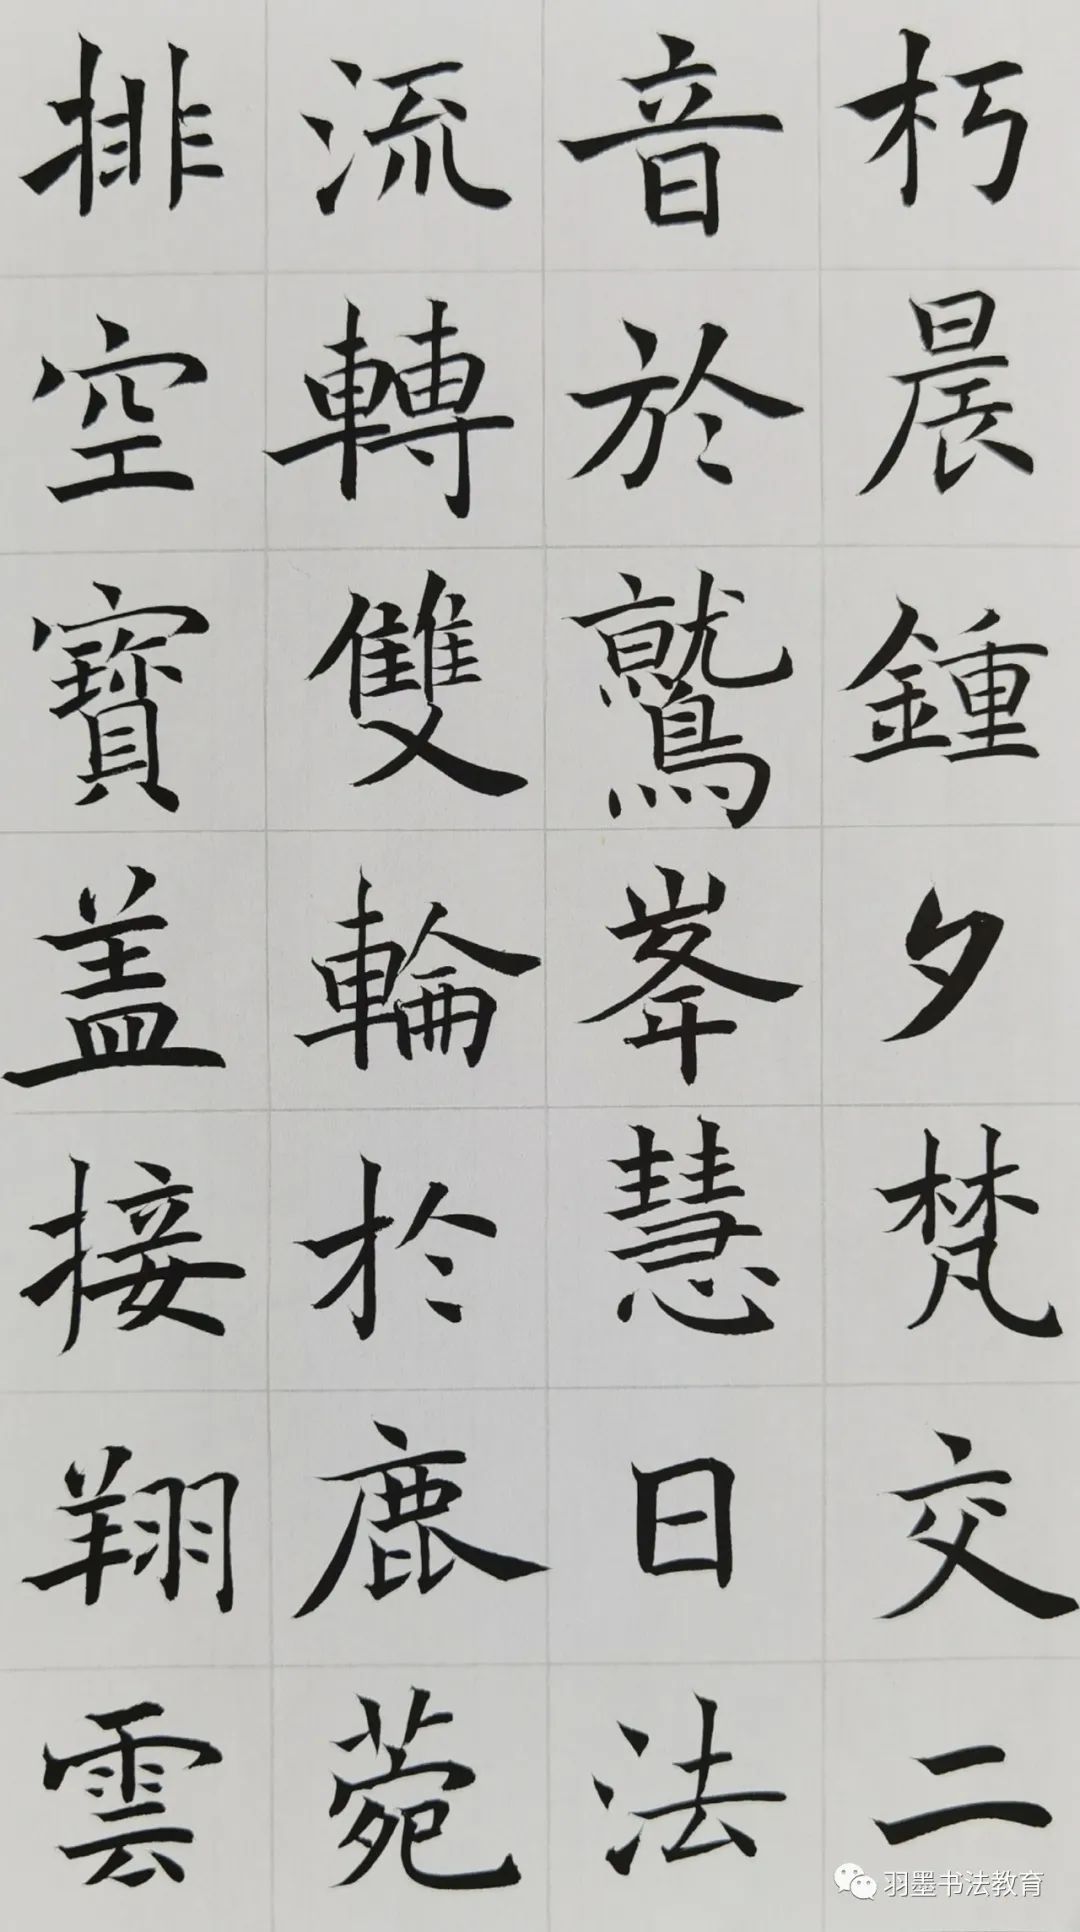 朽晨鍾夕梵交二
音於鷲峯慧日法
流轉雙輪於鹿菀
排空寶盖接翔雲
羽墨书法教育